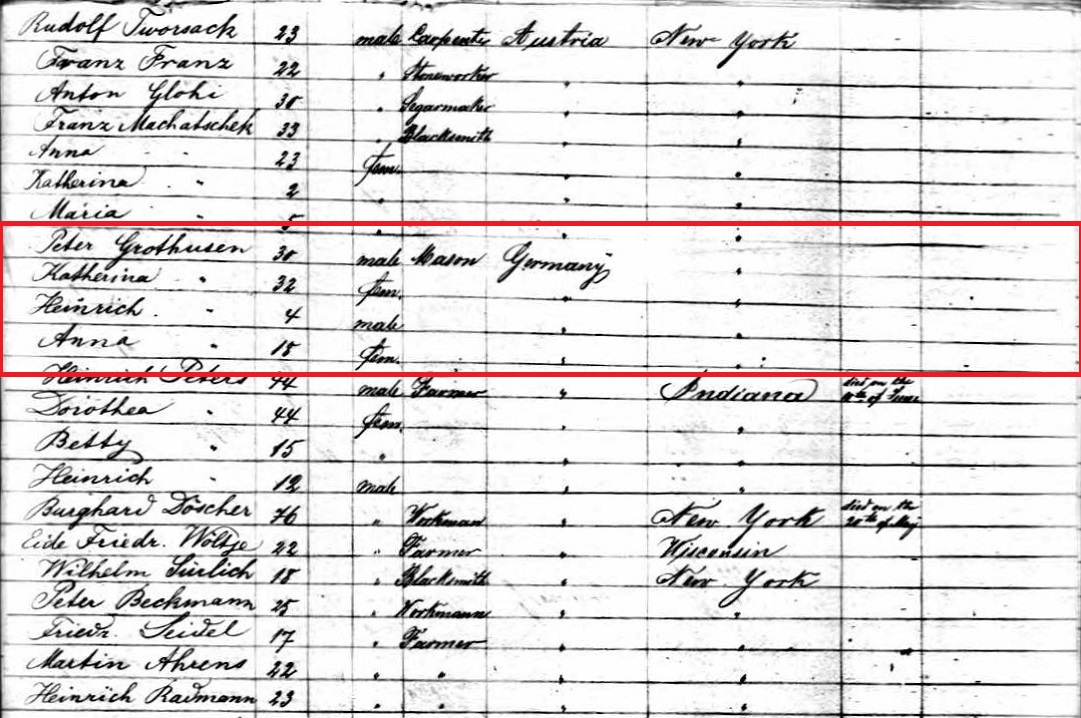 Rudolf Tworsack 23 male Carpente Austria New York
Franz Franz 22 " Stoneworker " "
Anton Glohi 30 " Segarmaker " "
Franz Machatschek 33 " Blacksmith " "
Anna " 23 fem. " "
Katherina " 2 " " "
Maria " 5 " " "
Peter Grothusen 30 male Mason Germany "
Katherina " 32 fem. " "
Heinrich " 4 male " "
Anna " 18 fem. " "
Heinrich Peters 44 male Farmer " Indiana died on the
of June
Dorothea " 44 fem. " "
Betty " 15 " " "
Heinrich " 12 male " "
Burghard Döscher 76 " Workman " New York died on the
20th of May
Eide Friedr. Woltje 22 " Farmer " Wisconsin
Wilhelm 18 " Blacksmith " New York
Peter Beckmann 25 " Workmann " "
Friedr. Seidel 17 " Farmer " "
Martin Ahrens 22 " " " "
Heinrich Radmann 23 " " " "